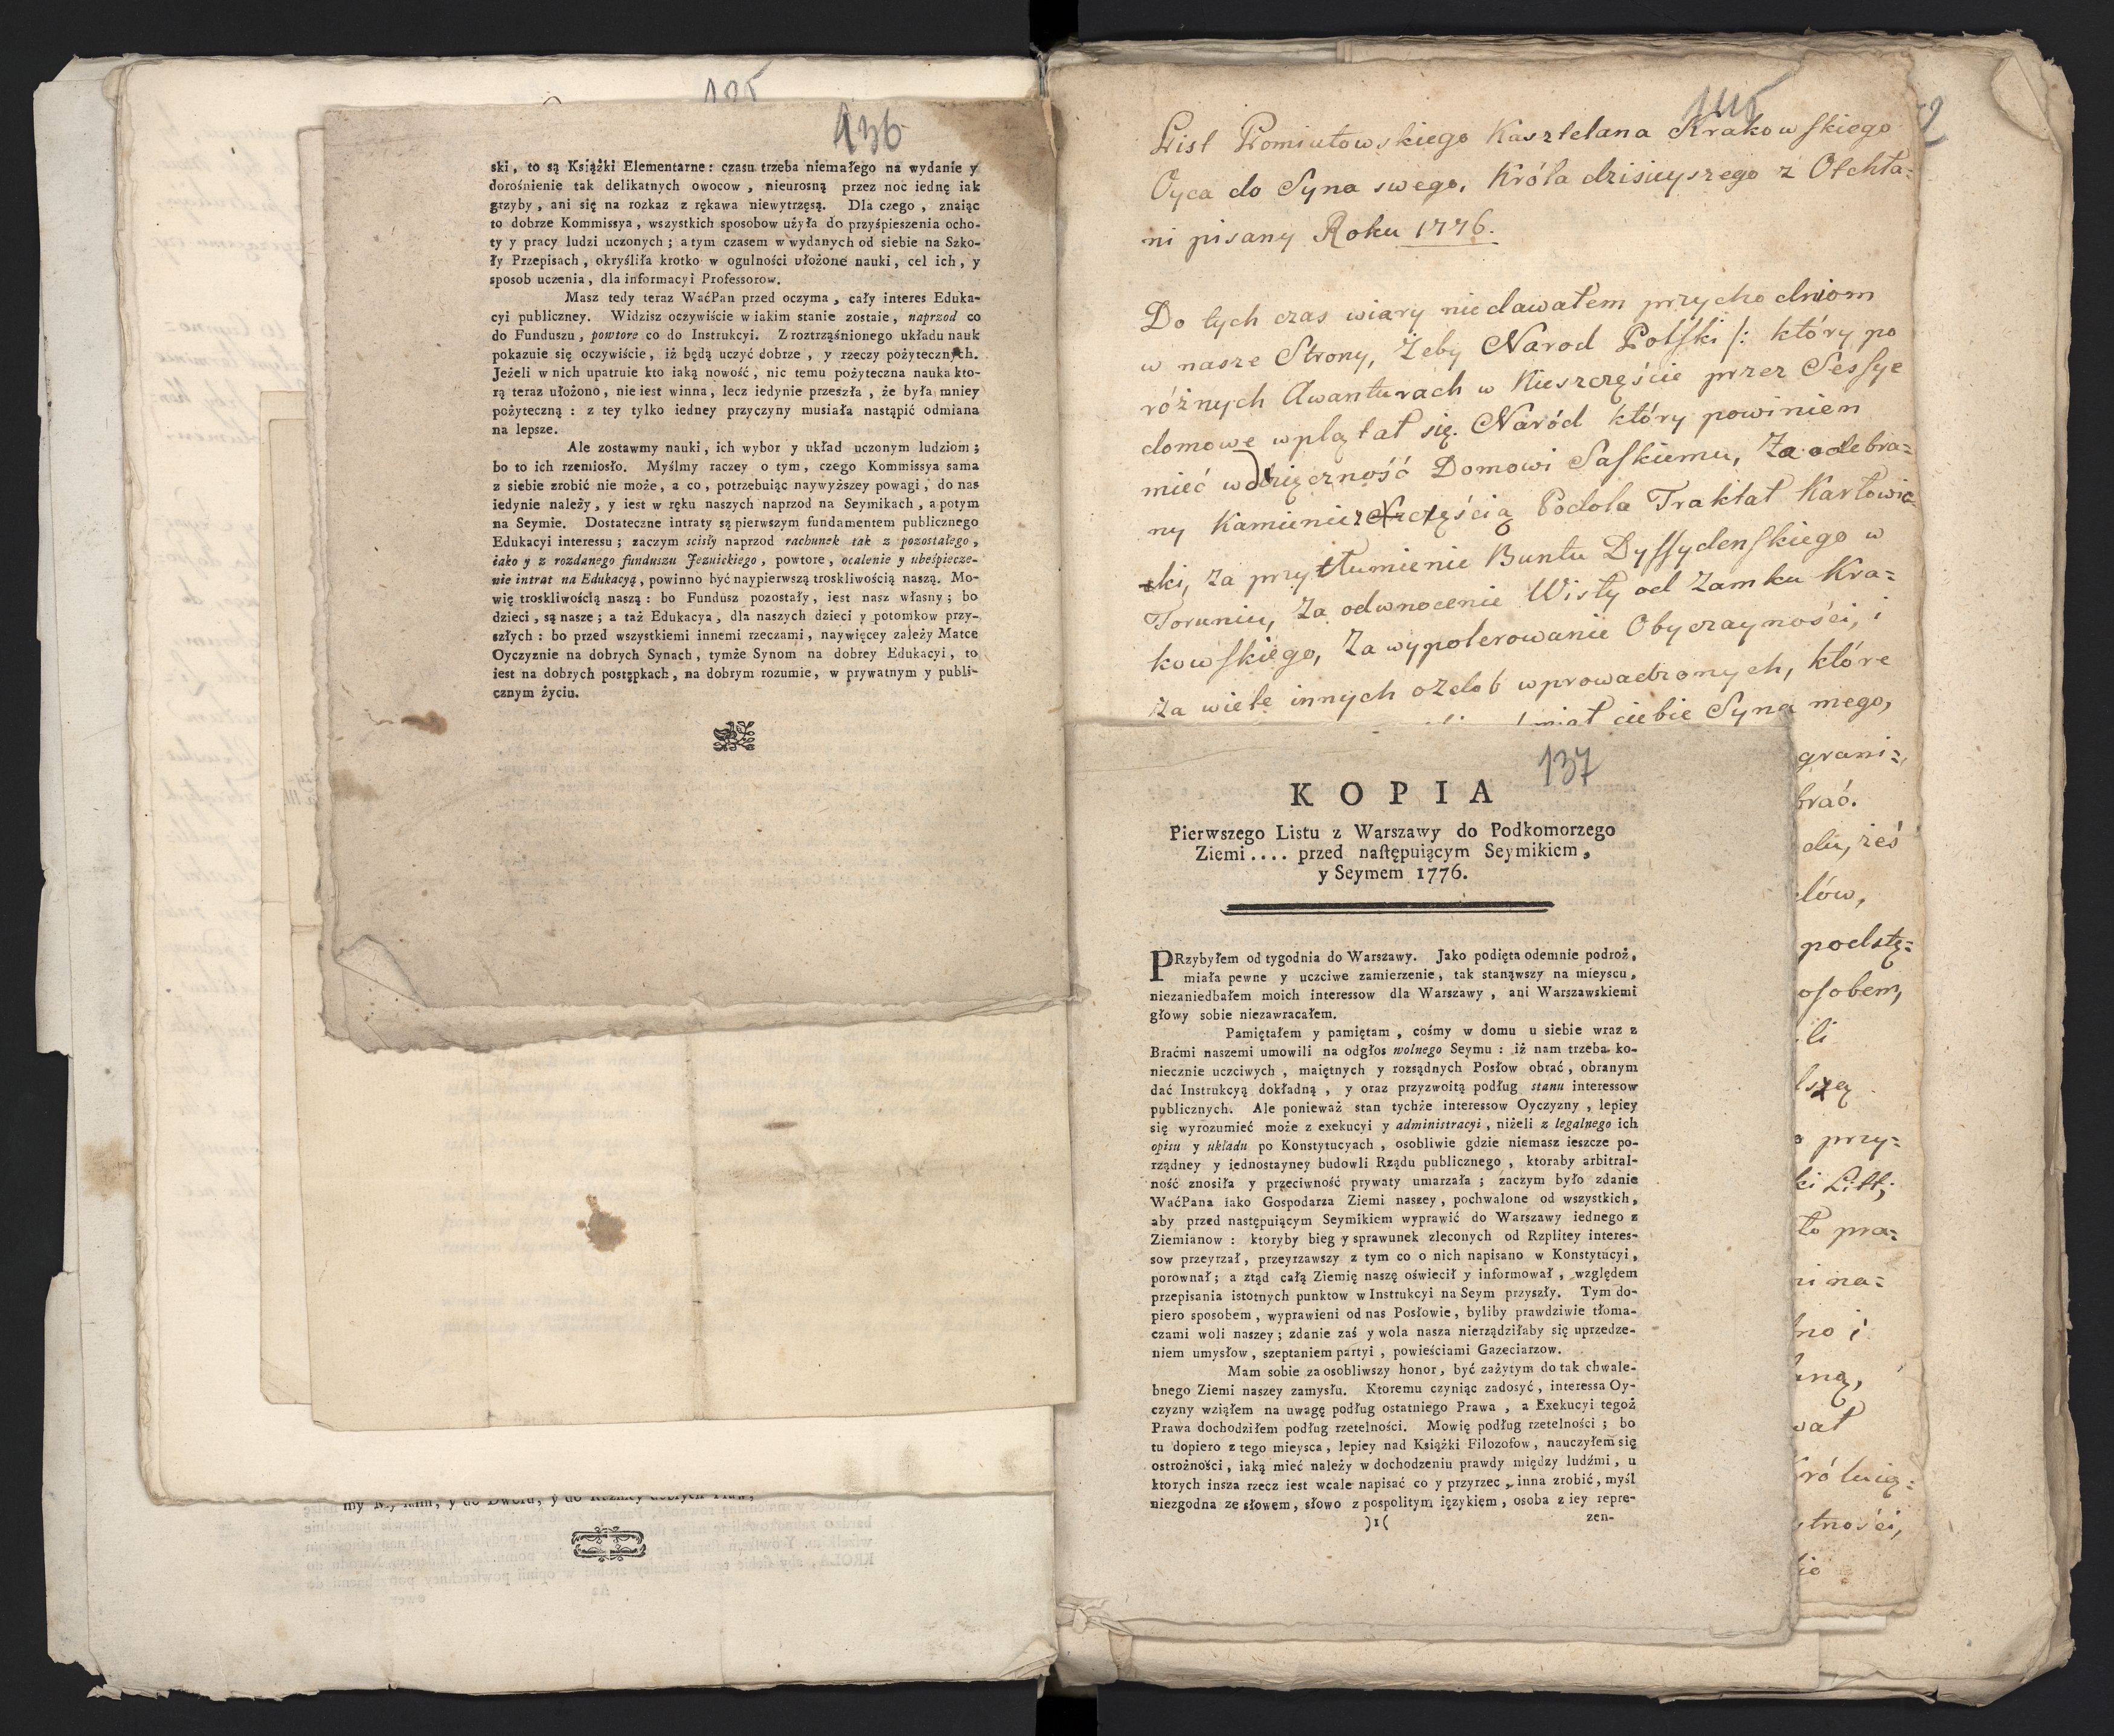 136
ski, to są Książki Elementarne: czasu trzeba niemałego na wydanie y
dorośnienie tak delikatnych owocow, nieurosną przez noc iednę iak
grzyby, ani się na rozkaz z rękawa niewytrzęsą. Dla czego, znaiąc
to dobrze Kommissya, wszystkich sposobow użyła do przyśpieszenia ocho-
ty y pracy ludzi uczonych; a tym czasem w wydanych od siebie na Szko-
ły Przepisach, okryśliła krotko w ogulności ułożone nauki, cel ich, y
sposob uczenia, dla informacyi Professorow.
Masz tedy teraz WaćPan przed oczyma, cały interes Eduka-
cyi publiczney. Widzisz oczywiście w iakim stanie zostaie, naprzod co
do Funduszu, powtore co do Instrukcyi. Z roztrząśnionego układu nauk
pokazuie się oczywiście, iż będą uczyć dobrze, y rzeczy pożytecznych.
Jeżeli w nich upatruie kto iaką nowość, nic temu pożyteczna nauka kto-
rą teraz ułożono, nie iest winna, lecz iedynie przeszła, że była mniey
pożyteczną: z tey tylko iedney przyczyny musiała nastąpić odmiana
na lepsze.
Ale zostawmy nauki, ich wybor y układ uczonym ludziom;
bo to ich rzemiosło. Myślmy raczey o tym, czego Kommissya sama
z siebie zrobić nie może, a co, potrzebuiąc naywyższey powagi, do nas
iedynie należy, y iest w ręku naszych naprzod na Seymikach, a potym
na Seymie. Dostateczne intraty są pierwszym fundamentem publicznego
Edukacyi interessu; zaczym scisły naprzod rachunek tak z pozostałego,
iako y z rozdanego funduszu Jezuickiego, powtore, ocalenie y ubeśpiecze-
nie intrat na Edukacyą, powinno być naypierwszą troskliwością naszą. Mo-
wię troskliwością naszą: bo Fundusz pozostały, iest nasz własny; bo
dzieci, są nasze; a taż Edukacya, dla naszych dzieci y potomkow przy-
szłych: bo przed wszystkiemi innemi rzeczami, naywięcey zależy Matce
Oyczyznie na dobrych Synach, tymże Synom na dobrey Edukacyi, to
iest na dobrych postępkach, na dobrym rozumie, w prywatnym y publi-
cznym życiu.
List Poniatowskiego Kasztelana Krakowskiego
Oyca do Syna swego, Króla dzisieyszego z Otchła=
ni pisany Roku 1776.
Do tych czas wiary niedawałem przychodniom
w nasze Strony, żeby Narod Polski /: który po
różnych Awanturach w Nieszczęście przez Sessye
domowe wplątał się. Naród który powinien
mieć wdzięczność Domowi Saskiemu, za odebra=
ny Kamieniec z częścią Podola Traktat Karłowic
ki, za przytłumienie Buntu Dyssydenskiego w
Toruniu, za odwrocenie Wisły od Zamku Kra=
kowskiego, za wypolerowanie Obyczayności, i
za wiele innych ozdob wprowadzonych, które
ciebie Syna mego,
grani=
brać.
du, żeś
dów,
podstę=
osobem,
li
przy=
ki Litt;
to pra=
ni na=
no i
wał
Królwią=
tności,
137
KOPIA
Pierwszego Listu z Warszawy do Podkomorzego
Ziemi.... przed następuiącym Seymikiem,
y Seymem 1776.
PRzybyłem od tygodnia do Warszawy. Jako podięta odemnie podroż,
miała pewne y uczciwe zamierzenie, tak stanąwszy na mieyscu,
niezaniedbałem moich interessow dla Warszawy, ani Warszawskiemi
głowy sobie niezawracałem.
Pamiętałem y pamiętam, cośmy w domu u siebie wraz z
Braćmi naszemi umowili na odgłos wolnego Seymu: iż nam trzeba ko-
niecznie uczciwych, maiętnych y rozsądnych Posłow obrać, obranym
dać Instrukcyą dokładną, y oraz przyzwoitą podług stanu interessow
publicznych. Ale ponieważ stan tychże interessow Oyczyzny, lepiey
się wyrozumieć może z exekucyi y administracyi, niżeli z legalnego ich
opisu y układu po Konstytucyach, osobliwie gdzie niemasz ieszcze po-
rządney y iednostayney budowli Rządu publicznego, ktoraby arbitral-
ność znosiła y przeciwność prywaty umarzała; zaczym było zdanie
WaćPana iako Gospodarza Ziemi naszey, pochwalone od wszystkich,
aby przed następuiącym Seymikiem wyprawić do Warszawy iednego z
Ziemianow: ktoryby bieg y sprawunek zleconych od Rzplitey interes-
sow przeyrzał, przeyrzawszy z tym co o nich napisano w Konstytucyi,
porownał; a ztąd całą Ziemię naszę oświecił y informował, względem
przepisania istotnych punktow w Instrukcyi na Seym przyszły. Tym do-
piero sposobem, wyprawieni od nas Posłowie, byliby prawdziwie tłoma-
czami woli naszey; zdanie zaś y wola nasza nierządziłaby się uprzedze-
niem umysłow, szeptaniem partyi, powieściami Gazeciarzow.
Mam sobie za osobliwszy honor, być zażytym do tak chwale-
bnego Ziemi naszey zamysłu. Ktoremu czyniąc zadosyć, interessa Oy-
czyzny wziąłem na uwagę podług ostatniego Prawa, a Exekucyi tegoż
Prawa dochodziłem podług rzetelności. Mowię podług rzetelności; bo
tu dopiero z tego mieysca, lepiey nad Książki Filozofow, nauczyłem się
ostrożności, iaką mieć należy w dochodzeniu prawdy między ludźmi, u
ktorych insza rzecz iest wcale napisać co y przyrzec, inna zrobić, myśl
niezgodna ze słowem, słowo z pospolitym ięzykiem, osoba z iey repre-
)1( zen-